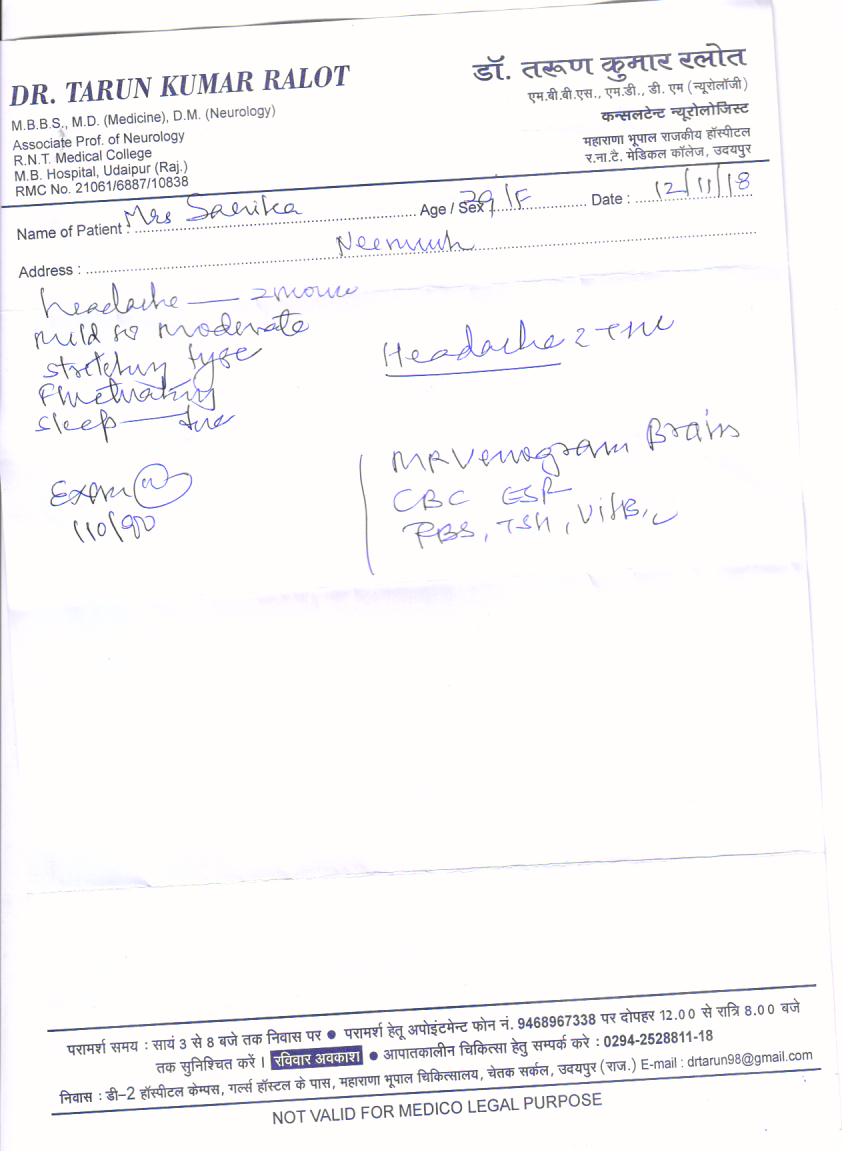 DR. TARUN KUMAR RALOT
M.B.B.S., M.D. (Medicine), D.M. (Neurology)
Associate Prof. of Neurology
R.N.T. Medical College
M.B. Hospital, Udaipur (Raj.)
RMC No. 21061/6887/10838
डॉ. तरूण कुमार रलोत
एम.बी.बी.एस., एम.डी., डी. एम (न्यूरोलॉजी)
कन्सलटेन्ट न्यूरोलोजिस्ट
महाराणा भूपाल राजकीय हॉस्पीटल
र.ना.टै. मेडिकल कॉलेज, उदयपुर
Name of Patient : Mrs Sarika Age / Sex 29/F Date : 12/11/18
Address : Neemuch
headache — 2
mild to moderate
stretching type
Fluctuating
sleep —
Exam (N)
110/90
Headache
MR Venogram Brain
CBC ESR
RBS, TSH, VitB12
परामर्श समय : सायं 3 से 8 बजे तक निवास पर ● परामर्श हेतू अपोइंटमेन्ट फोन नं. 9468967338 पर दोपहर 12.00 से रात्रि 8.00 बजे
तक सुनिश्चित करें । रविवार अवकाश ● आपातकालीन चिकित्सा हेतु सम्पर्क करे : 0294-2528811-18
निवास : डी–2 हॉस्पीटल केम्पस, गर्ल्स हॉस्टल के पास, महाराणा भूपाल चिकित्सालय, चेतक सर्कल, उदयपुर (राज.) E-mail : drtarun98@gmail.com
NOT VALID FOR MEDICO LEGAL PURPOSE